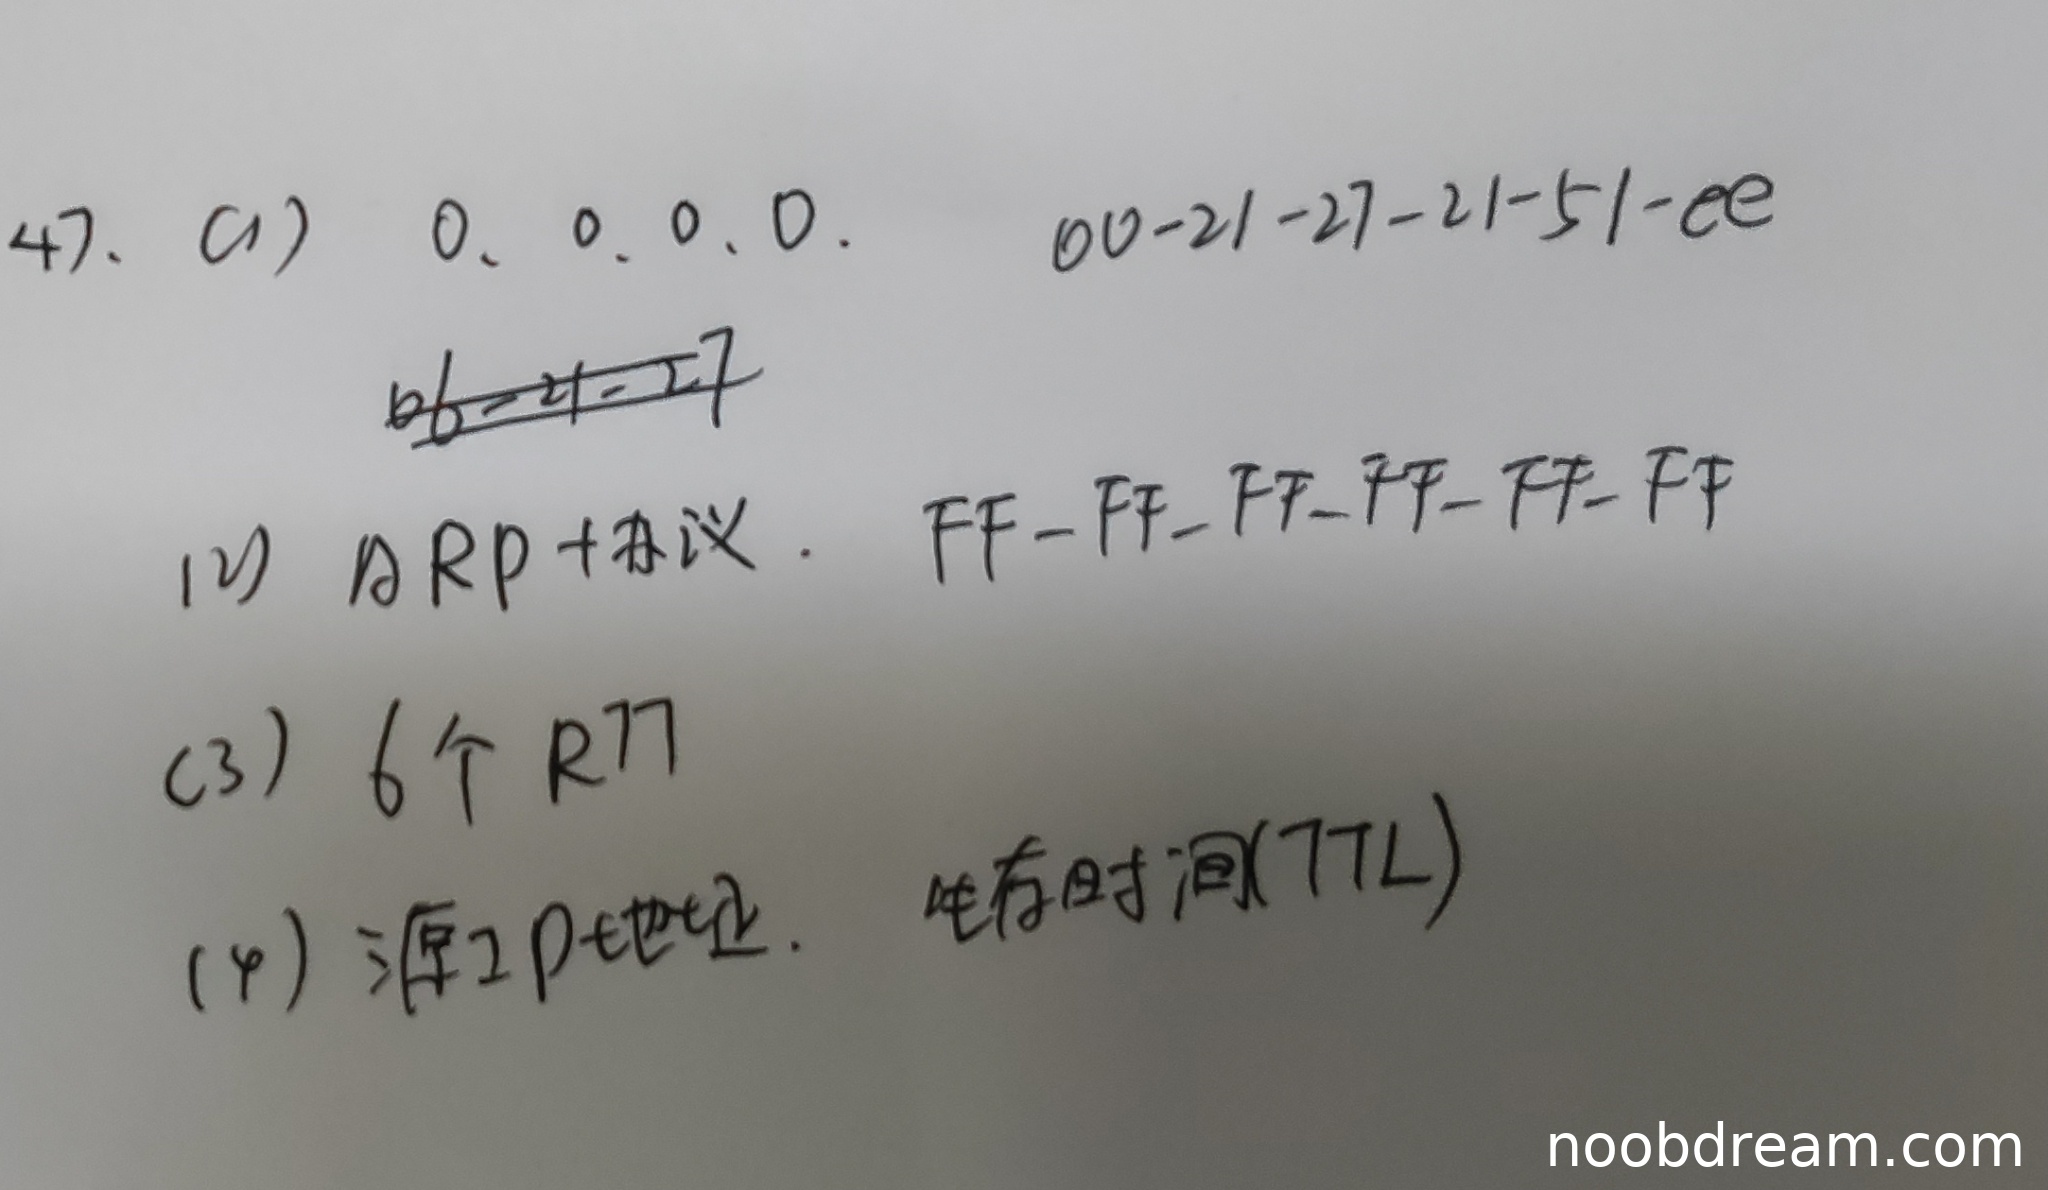 47. (1) 0. 0. 0. 0. 00-21-27-21-51-ee
06-21-27
(2) ARP协议. FF-FF-FF-FF-FF-FF
(3) 6个RTT
(4) 源IP地址. 生存时间(TTL)
noobdream.com